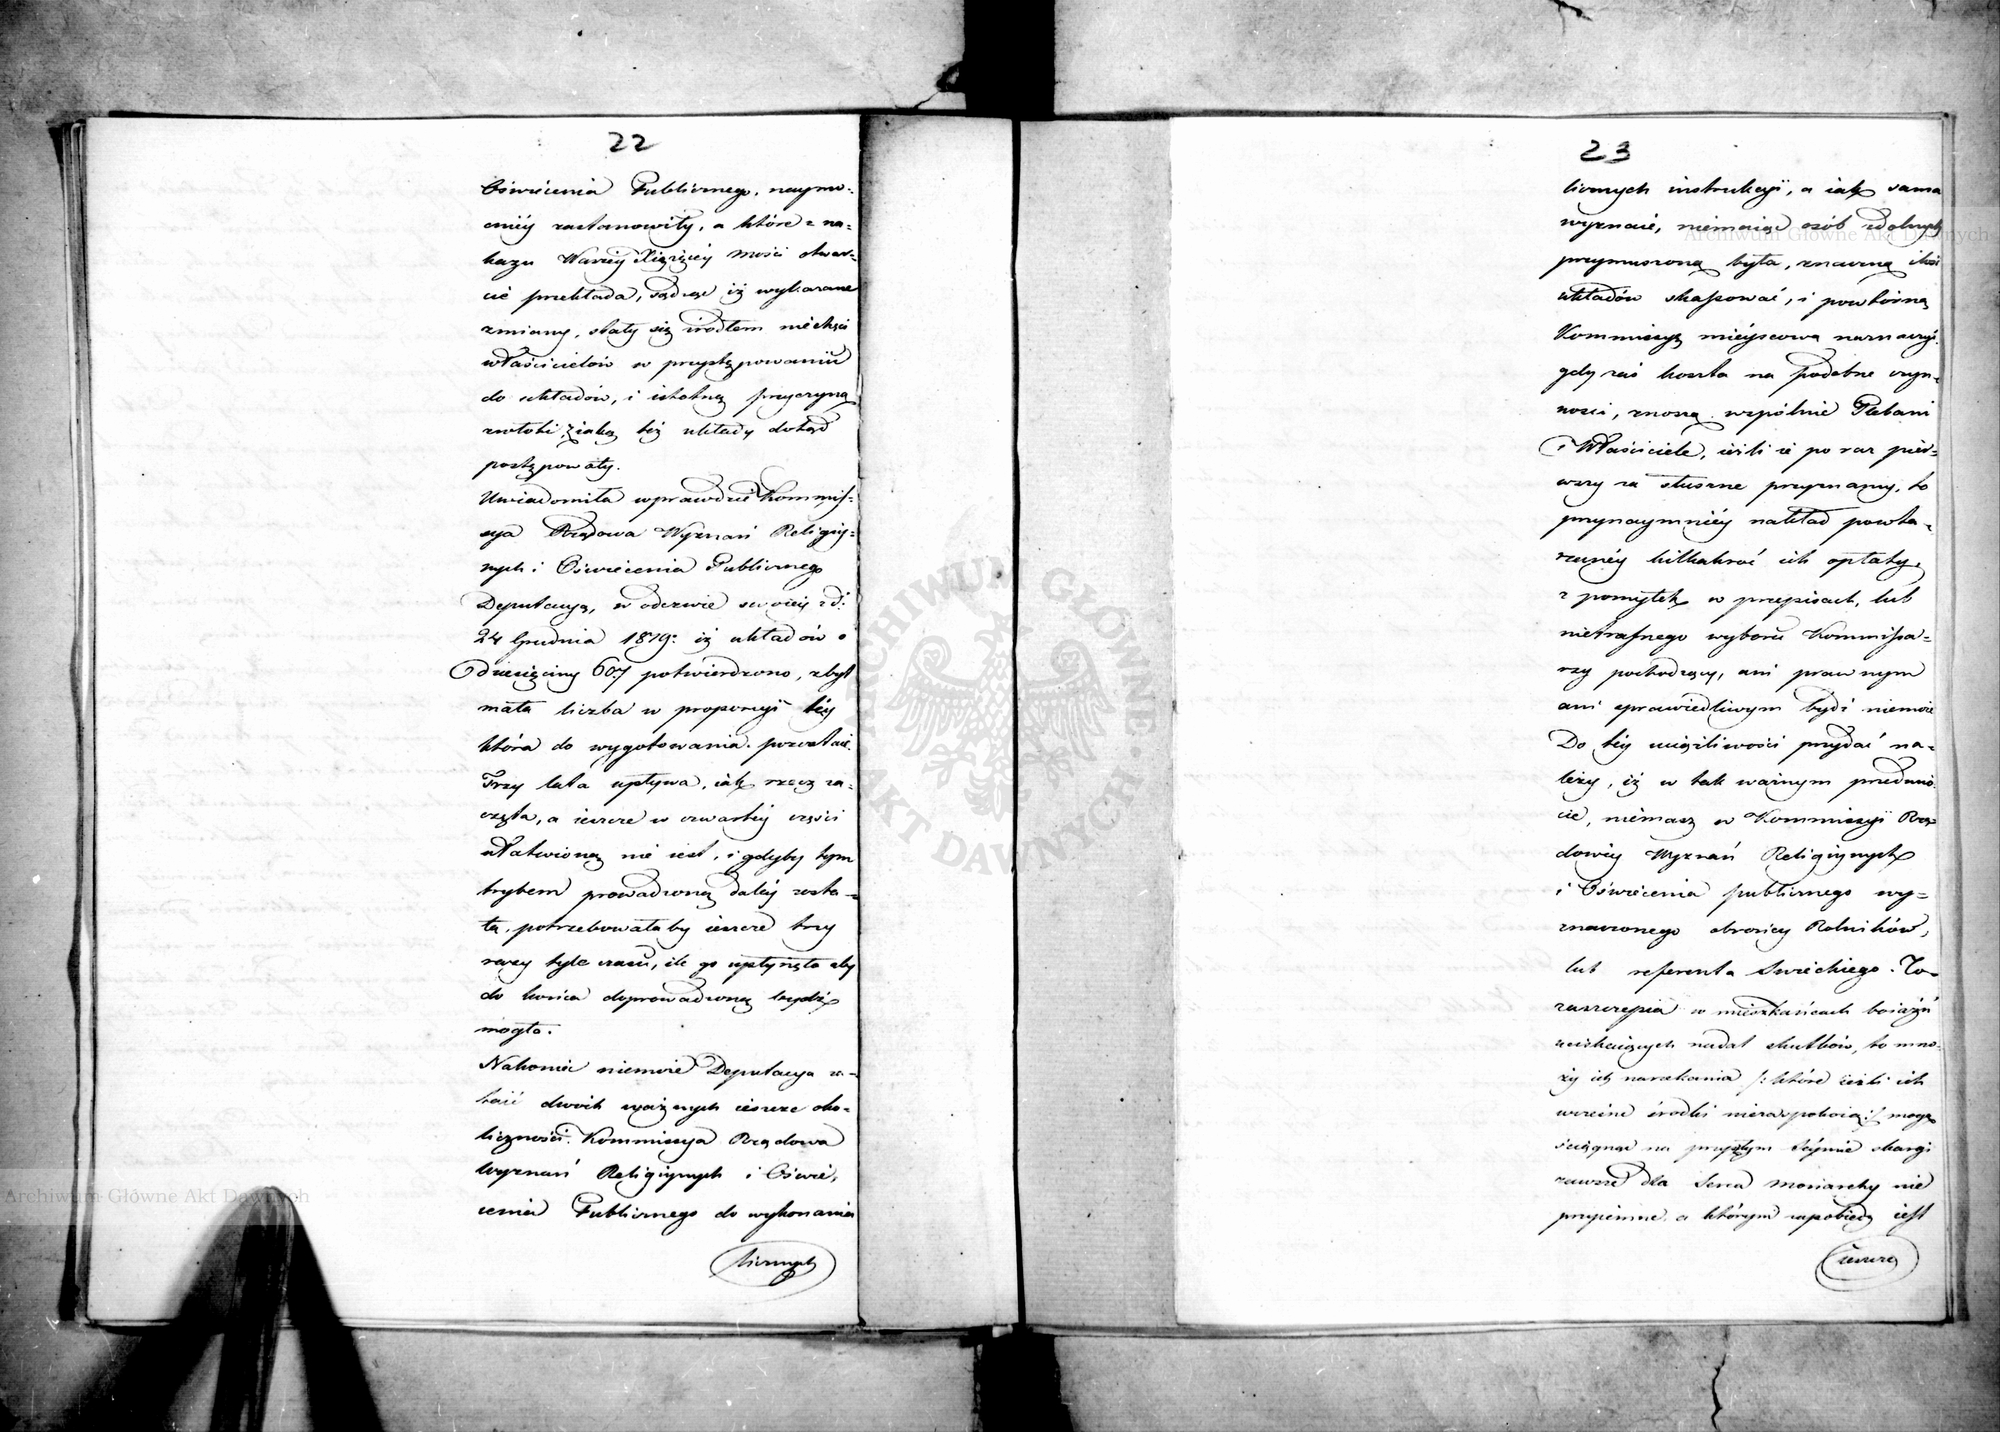 22
Oświécenia Publicznego, naymo-
cniéy zastanowiły, a które z na-
kazu Waszéy Xiążęcéy Mości otwar-
cie przekłada, sądząc iż wykazane
zmiany, stały się źrodłem niechęci
właścicielów w przystępowaniu
do układów, i istotną przyczyną
zwłoki z iaką też układy dotąd
postępowały.
Uwiadomiła wprawdzie Kommis-
sya Rządowa Wyznań Religiy-
nych i Oświecenia Publicznego
Deputacyą, w odezwie swoiéy z d:
24 Grudnia 1819: iż układów o
Dziesięciny 607 potwierdzono, zbyt
mała liczba w proporcyi téy
która do wygotowania pozostaie.
Trzy lata upływa, iak rzecz za-
częta, a ieszcze w czwartéy części
ułatwioną nie iest, i gdyby tym
trybem prowadzoną daléy zosta-
ła, potrzebowałaby ieszcze trzy
razy tyle czasu, ile go upłynęło aby
do końca doprowadzoną bydź
mogła.
Nakoniec niemoże Deputacya za-
taić dwóch ważnych ieszcze oko-
liczności. Kommissya Rządowa
Wyznań Religiynych i Oświé-
cenia Publicznego do wykonania
licznych
23
licznych instrukcyi, a iak sama
wyznaie, niemaiąc osób zdolnych
przymuszoną była, znaczną ilość
układów skassować, i powtórną
Kommissyą mieyscową naznaczyć.
gdy zaś koszta na podobne czyn-
ności, znoszą wspólnie Plebani
i Właściciele, ieżli ie po raz pier-
wszy za słuszne przyznamy, to
przynaymniéy nakład powta-
rzanéy kilkakroć ich opłaty,
z pomyłek w przepisach, lub
nietrafnego wyboru Kommissa-
rzy pochodzący, ani prawnym
ani sprawiedliwym bydź niemoże
Do téy uciążliwości przydać na-
leży, iż w tak ważnym przedmio-
cie, niemasz w Kommissyi Rzą-
dowéy Wyznań Religiynych
i Oświecenia publicznego wy-
znaczonego obrońcy Rolników,
lub referenta Swieckiego. To
zaszczepia w mieszkańcach boiaźń
uciskaiących nadal skutków, to mno-
ży ich narzekania /: które ieżli ich
wcześne środki niezaspokoią :/ mogą
ściągnąć na przyszłym Séymie skargi
zawsze dla Serca Monarchy nie
przyiemne, a którym zapobiedz iest
ieszcze
Archiwum Główne Akt Dawnych
Archiwum Główne Akt Dawnych
ARCHIWUM GŁÓWNE AKT DAWNYCH